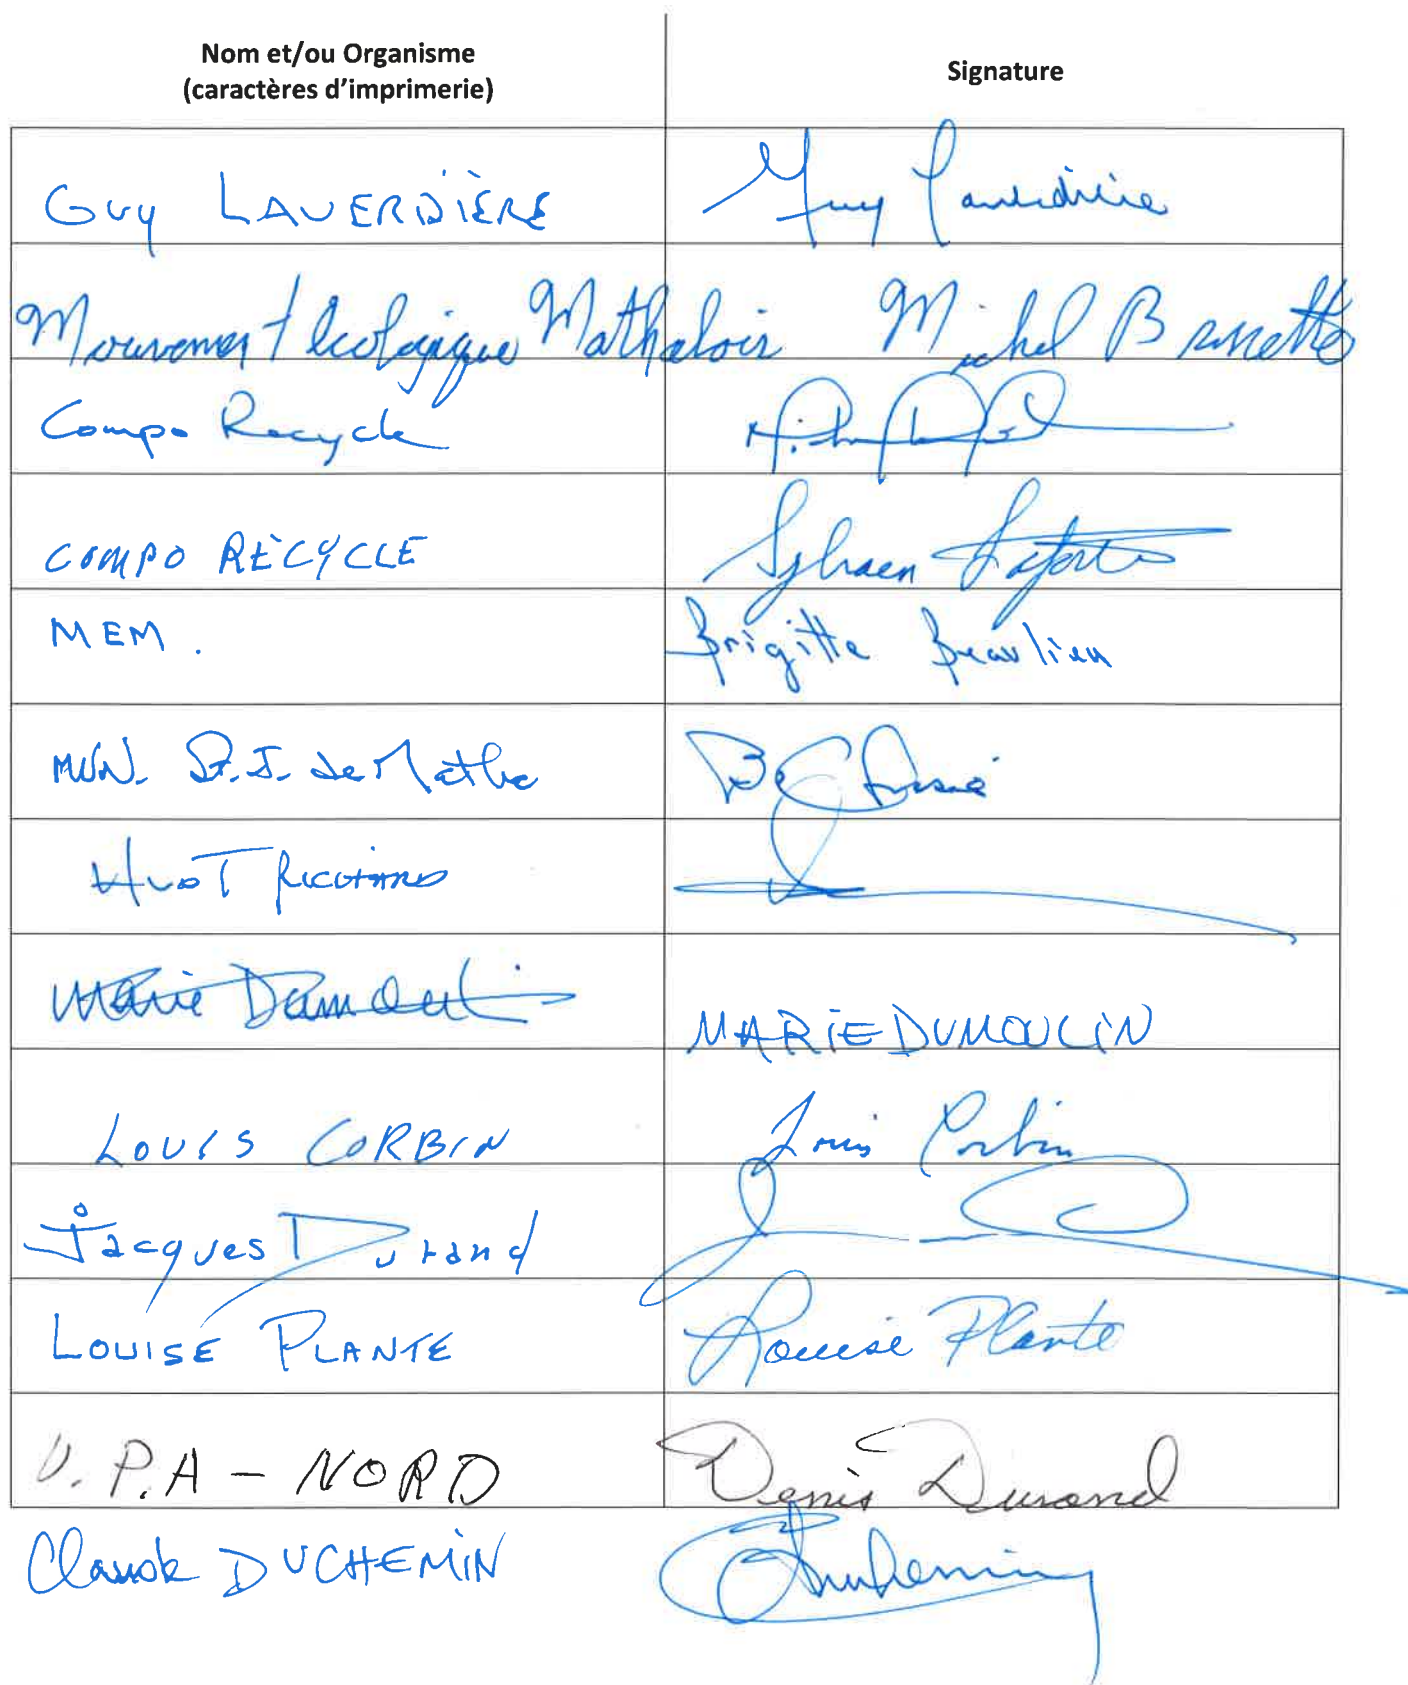 Nom et/ou Organisme
(caractères d'imprimerie)
Signature
GUY LAVERDIÈRE Guy Laverdière
Mouvement écologique Mathalois Michel Brunette
Compo Recycle
COMPO RÈCYCLE Sylvain Laporte
MEM. Brigitte Beaulieu
MUN. St. J. de Matha
HUOT RICHARD
Marie Dumoulin MARIE DUMOULIN
LOUIS CORBIN Louis Corbin
Jacques Durand
LOUISE PLANTE Louise Plante
U.P.A - NORD Denis Durand
Claude DUCHEMIN